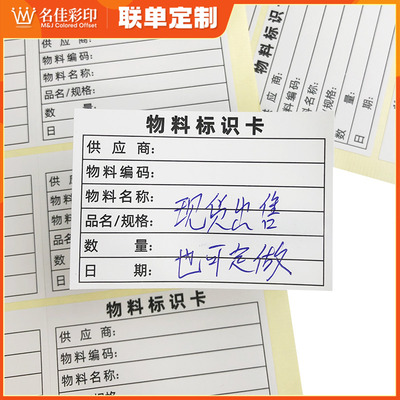 名佳彩印
M&J Colored Offset
联单定制
供 应 商:
物料编码:
物料名称:
品名/规格:
数 量:
日 期:
物料标识卡
供 应 商:
物料编码:
物料名称:
品名/规格: 现货出售
数 量:
日 期: 也可定做
物料标识卡
供 应 商:
物料编码:
物料名称:
物料
供 应 商:
物料编码:
物料名称:
品名/规格:
数 量:
日 期: